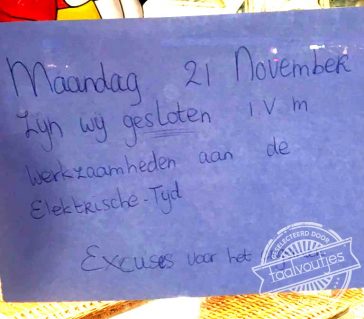 Maandag 21 November
Zyn wy gesloten i v m
werkzaamheden aan de
Elektrische-Tyd
Excuses voor het
GESELECTEERD DOOR
taalvoutjes